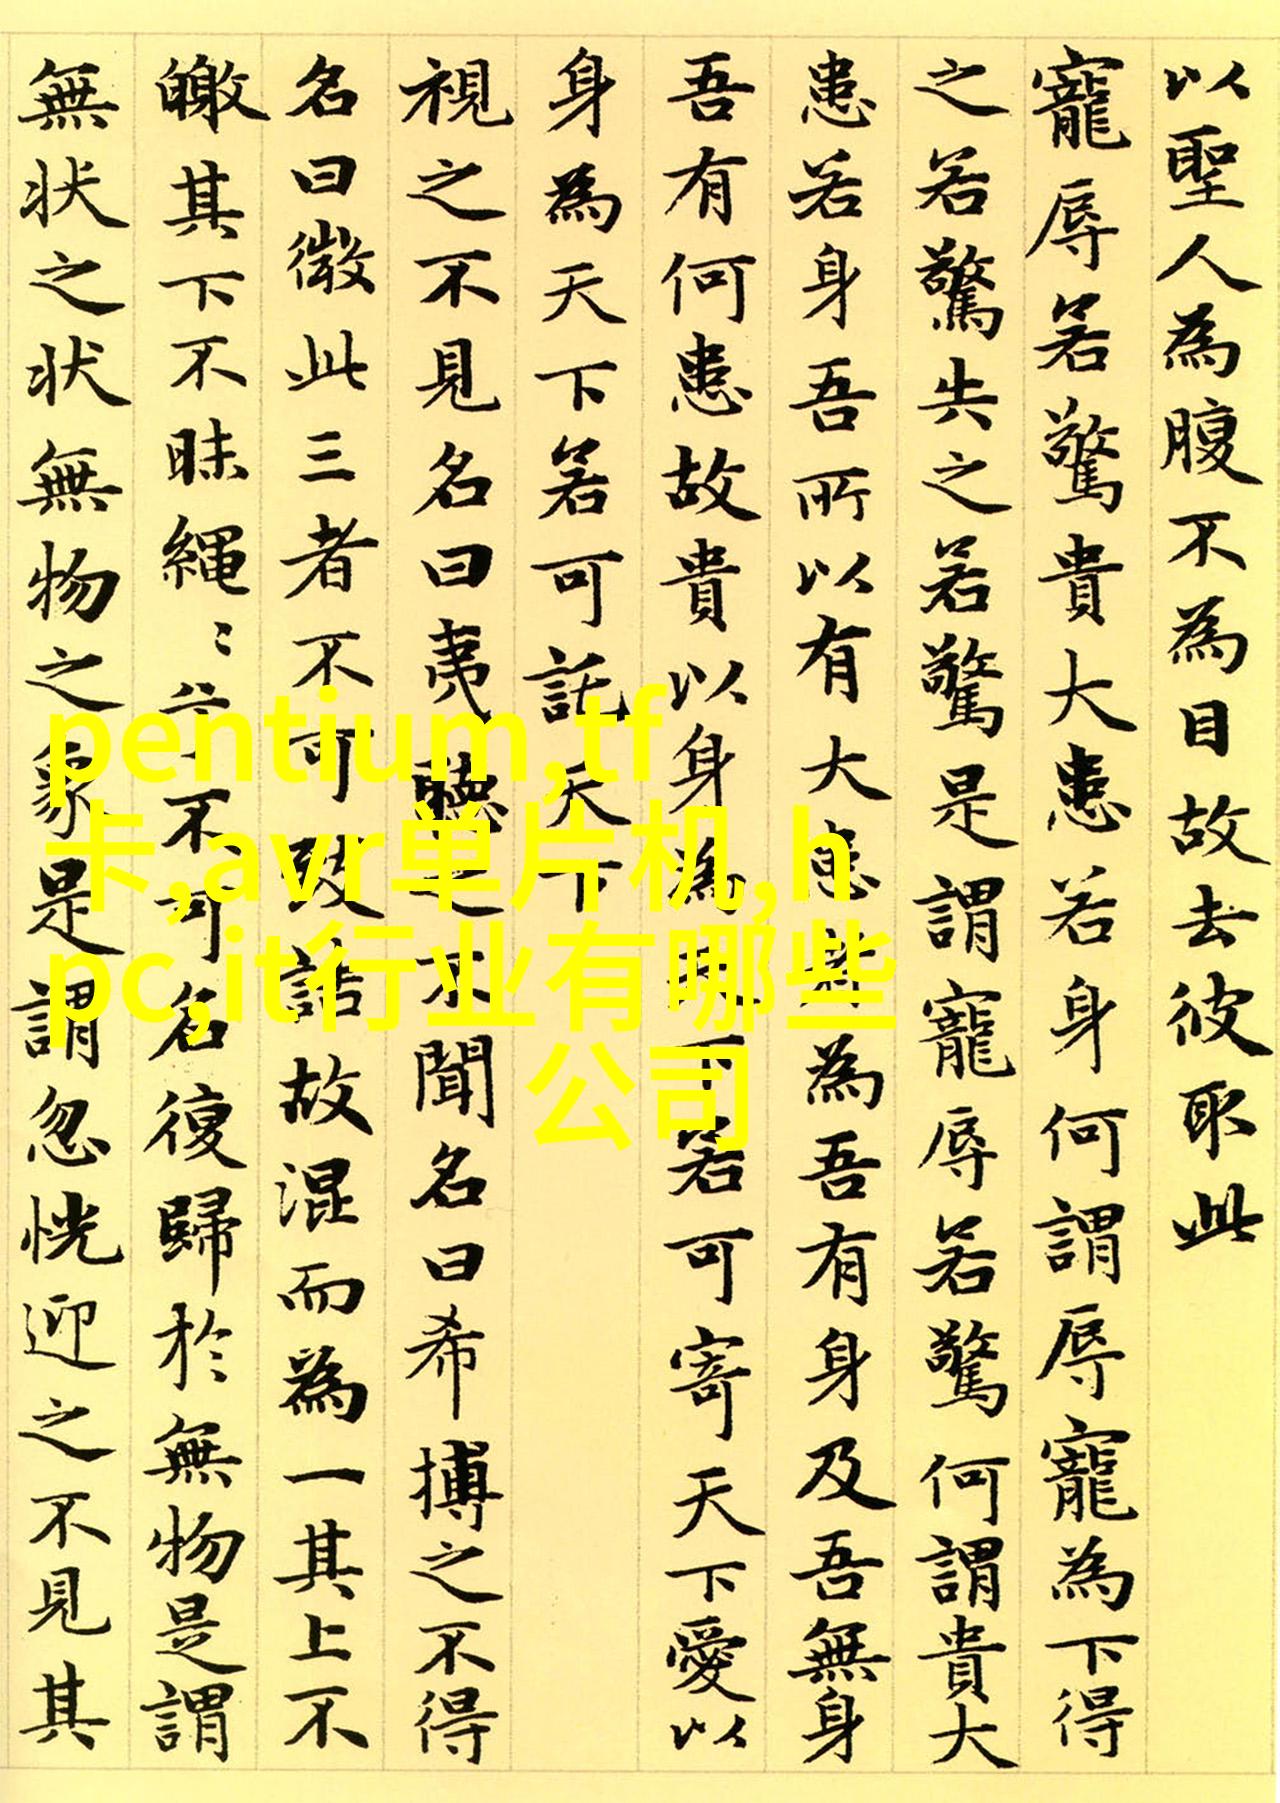 以聖人為腹不為目故去彼取此
寵辱若驚貴大患若身何謂辱寵為下得
之若驚失之若驚是謂寵辱若驚何謂貴大
患若身吾所以有大患者為吾有身及吾無身
吾有何患故貴以身為天下若可寄天下愛以
身為天下若可託天下
視之不見名曰夷聽之不聞名曰希搏之不得
名曰微此三者不可致詰故混而為一其上不
皦其下不昧繩〻兮不可名復歸於無物是謂
無状之状無物之象是謂忽恍迎之不見其
pentium,tf
卡,avr单片机,h
pc,it行业有哪些
公司